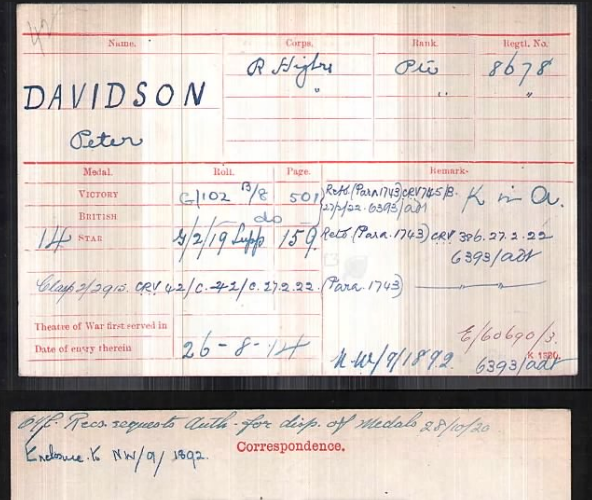 42
Name. Corps. Rank. Regtl. No.
DAVIDSON R Highrs Pte 8678
Peter " " "
Medal. Roll. Page. Remarks
VICTORY G/102 B/8 501 Retd (Para. 1743) CRV 745/B. K in A.
BRITISH do 27/2/22. 6393/adt
14 STAR G/2/19 Supp 159 Retd (Para. 1743) CRV 386. 27.2.22
6393/adt
Clasp 2/2915. CRV 42/C. 42/C. 27.2.22. (Para. 1743)
Theatre of War first served in
Date of entry therein 26-8-14
E/60690/3.
NW/9/1892. K 1380.
6393/adt
Off. Recs requests Auth. for disp. of Medals 28/10/20
Correspondence.
Enclosure. to NW/9/1892.